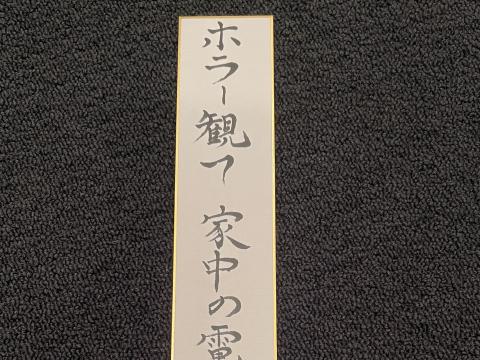 ホラー観て 家中の電